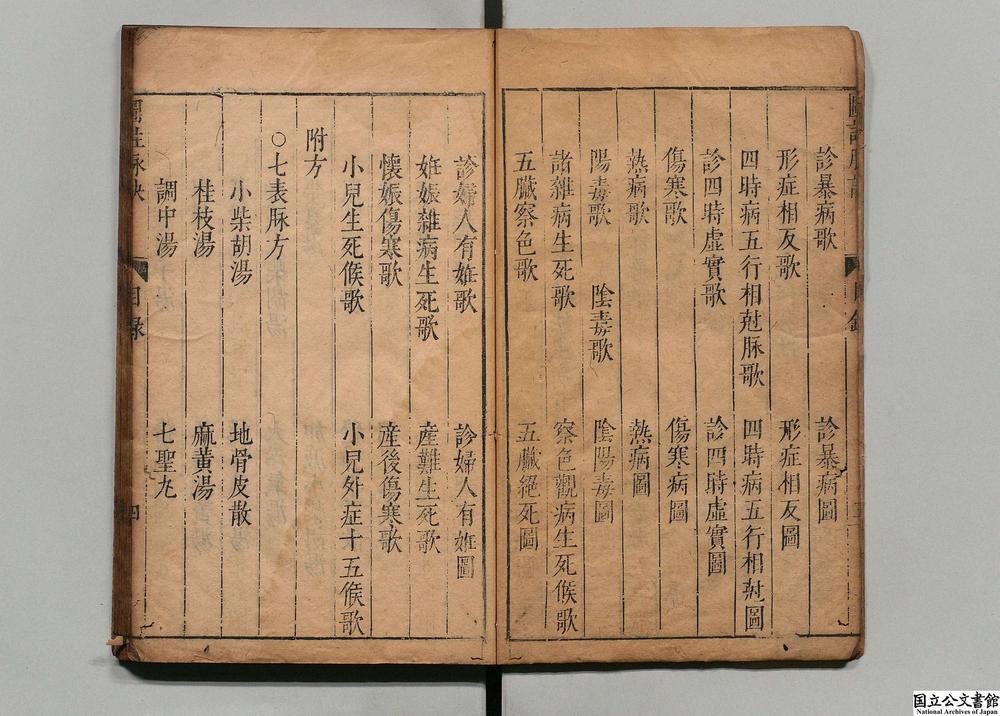 診暴病歌 診暴病圖
形症相反歌 形症相反圖
四時病五行相尅脉歌 四時病五行相尅圖
診四時虛實歌 診四時虛實圖
傷寒歌 傷寒病圖
熱病歌 熱病圖
陽毒歌 陰毒歌 陰陽毒圖
諸雜病生死歌 察色觀病生死候歌
五臟察色歌 五臟絕死圖
診婦人有姙歌 診婦人有姙圖
姙娠雜病生死歌 産難生死歌
懷娠傷寒歌 産後傷寒歌
小兒生死候歌 小兒外症十五候歌
附方
○七表脉方
小柴胡湯 地骨皮散
桂枝湯 麻黃湯
調中湯 七聖丸
圖註脉訣 目録 四
国立公文書館
National Archives of Japan